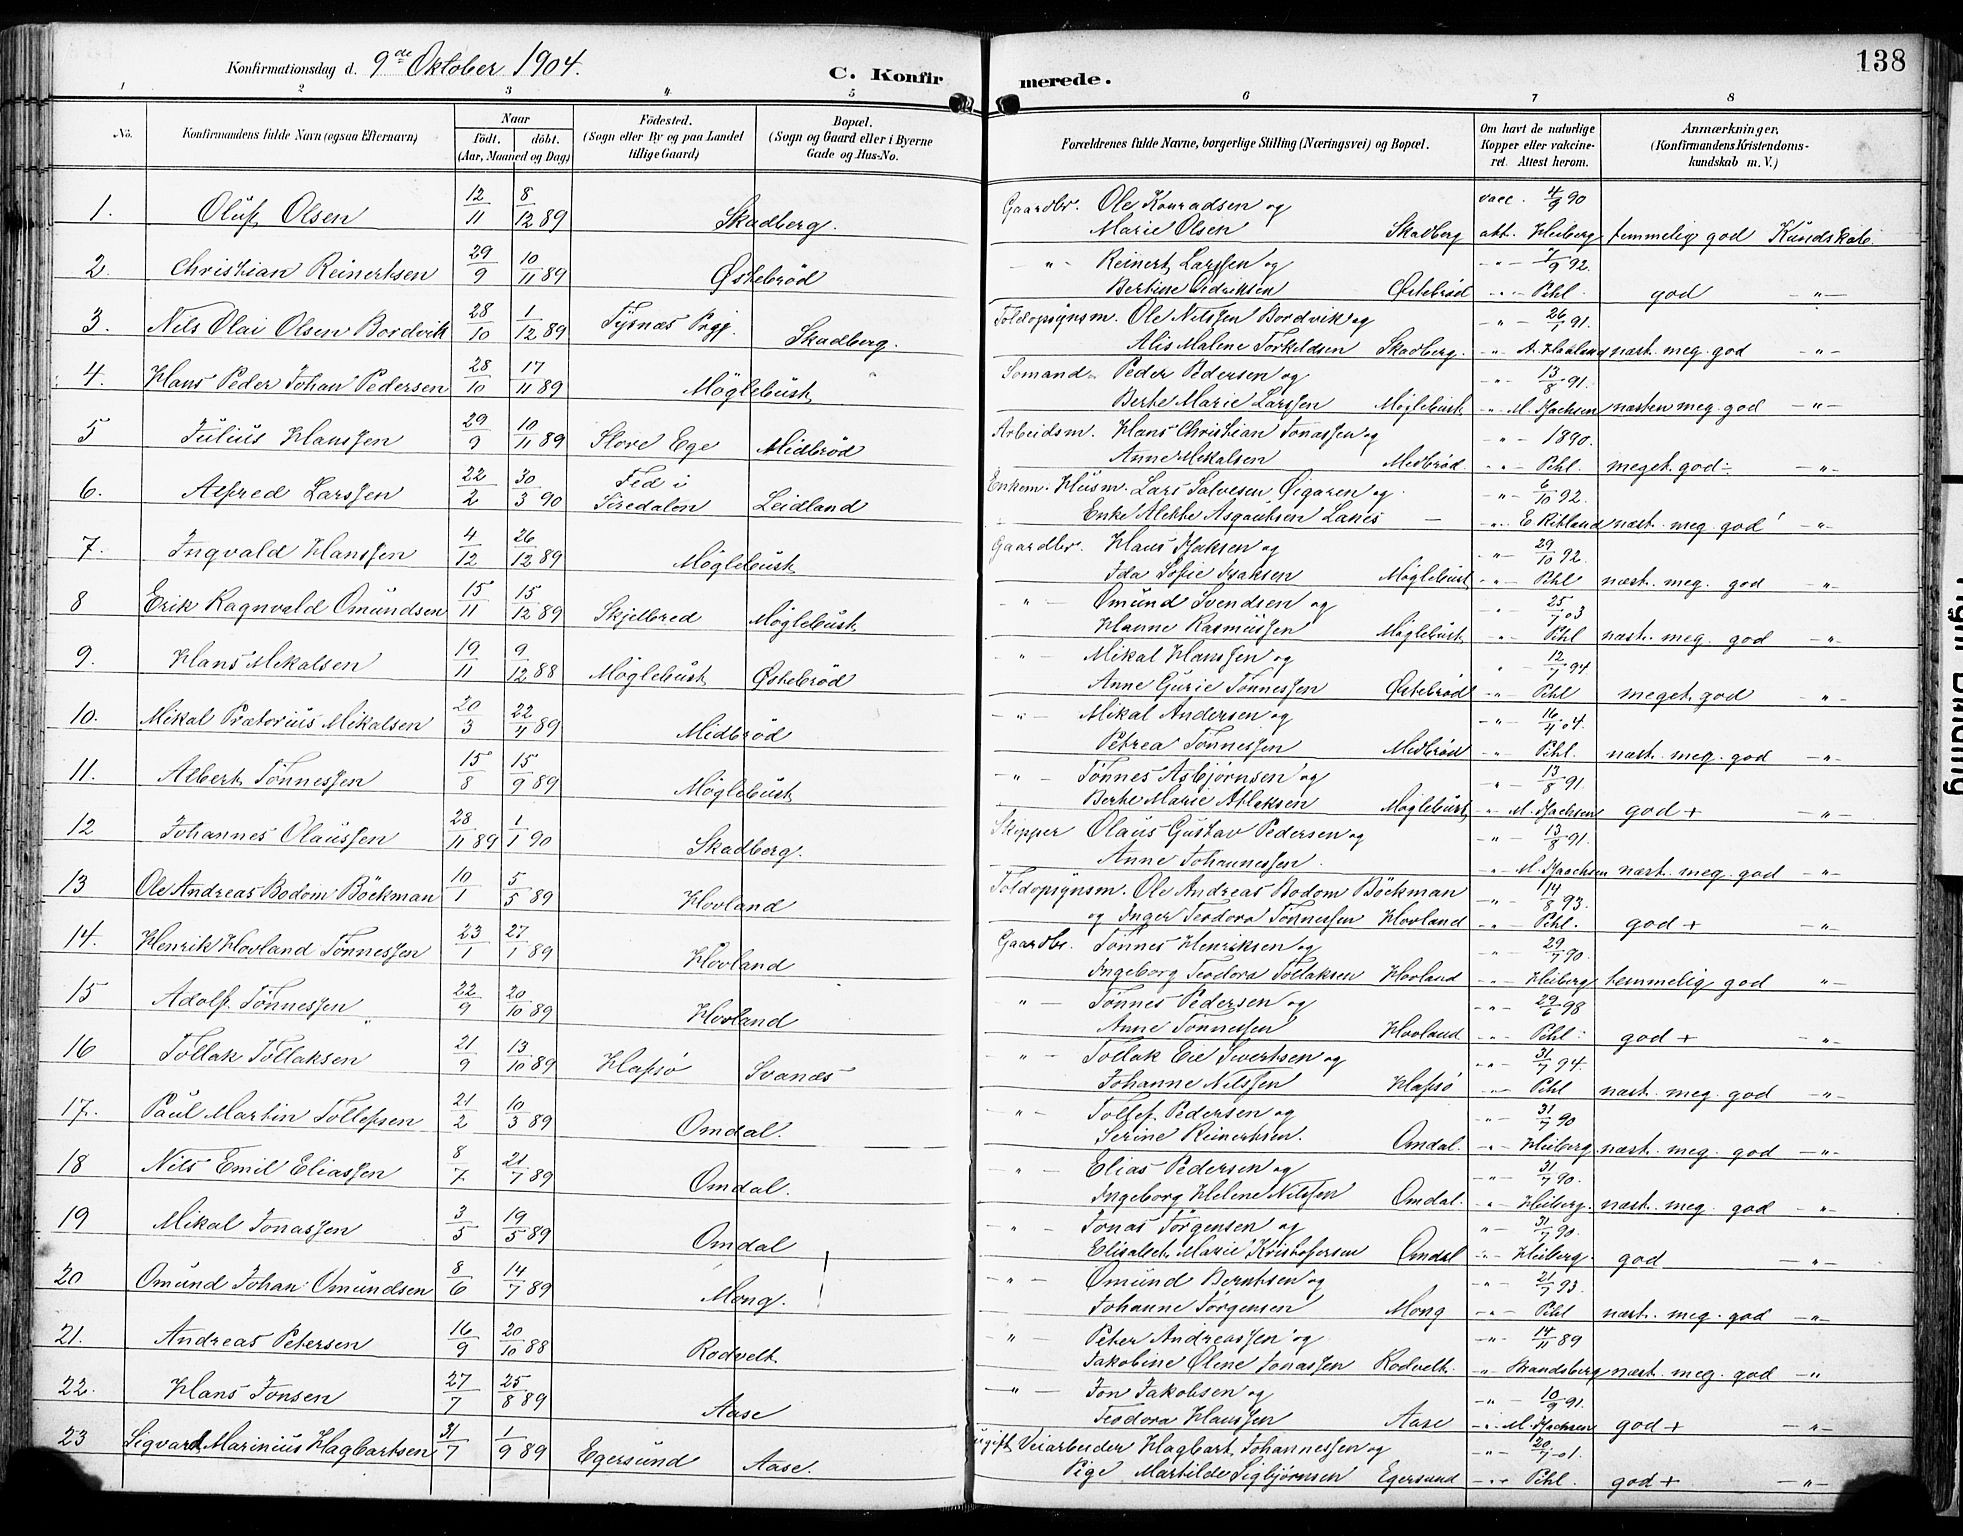 138
Konfirmationsdag d. 9de Oktober 1904.
C. Konfirmerede.
1 2 3 4 5 6 7 8
No. Konfirmandens fulde Navn (ogsaa Efternavn) Naar født. døbt. (Aar, Maaned og Dag) Fødested. (Sogn eller By og paa Landet tillige Gaard) Bopæl. (Sogn og Gaard eller i Byerne Gade og Hus-No. Forældrenes fulde Navne, borgerlige Stilling (Næringsvei) og Bopæl. Om havt de naturlige Kopper eller vaccineret. Attest herom. Anmærkninger, (Konfirmandens Kristendomskundskab m. V.)
1. Oluf Olsen 12/11 8/12 89 Skadberg. Gaardbr. Ole Konradsen og vacc. 4/9 90
Marie Olsen Skadberg att. Heiberg temmelig god Kundskab.
2. Christian Reinertsen 29/9 10/11 89 Østebrød -"- Reinert Larssen og -"- 1/9 92.
Bertine Østebrød -"- Pihl. god -"-
3. Nils Olai Olsen Bordvik 28/10 1/12 89 Tysnæs Prgj. Skadberg. Toldopsynsm. Ole Nilssen Bordvik og -"- 26/1 91.
Alis Malene Torkildsen Skadberg. -"- A. Haaland næst. meg. god -"-
4. Hans Peder Johan Pedersen 28/10 17/11 89 Møglebust Sømand Peder Pedersen og -"- 13/8 91.
Berte Marie Larssen Møglebust -"- M. Isachsen næsten meg. god -"-
5 Julius Hanssen 29/9 10/11 89 Store Ege Midbrød Arbeidsm. Hans Christian Jonassen og -"- 1890.
Anne Mikalsen Midbrød. -"- Pihl. meget god -"-
6. Alfred Larssen 22/2 30/3 90 Fed i Siredalen Leidland Enkem. Husm. Lars Salvesen Øigaren og -"- 6/10 92.
Enke Alette Asgautsen Lanes — -"- E. Ribland næst. meg. god -"-
7. Ingvald Hanssen 4/12 26/12 89 Møglebust Gaardbr. Hans Isaksen og -"- 29/10 92.
Ida Sofie Isaksen Møglebust -"- Pihl næst. meg. god -"-
8 Erik Ragnvald Omundsen 15/11 15/12 89 Skjelbred Møglebust -"- Omund Svendsen og -"- 25/7 03
Hanne Rasmussen Møglebust -"- Pihl næst. meg. god -"-
9. Hans Mikalsen 19/11 9/12 88 Møglebust Østebrød -"- Mikal Hanssen og -"- 12/7 94
Anne Gurie Tønnessen Østebrød -"- Pihl meget god -"-
10. Mikal Prætorius Mikalsen 20/3 22/4 89 Midbrød -"- Mikal Andersen og -"- 16/4 04.
Petrea Tønnessen Midbrød -"- Pihl. næst. meg. god -"-
11. Albert Tønnessen 15/8 15/9 89 Møglebust -"- Tønnes Asbjørnsen og -"- 13/8 91.
Berte Marie Atlaksen Møglebust -"- M. Isachsen god + -"-
12 Johannes Olaussen 28/11 89 1/1 90 Skadberg. Skipper Olaus Gustav Pedersen og -"- 13/8 91.
Anne Johannessen. -"- M. Isachsen næst. meg. god -"-
13 Ole Andreas Bodom Böckman 10/1 5/5 89 Hovland Toldopsynsm. Ole Andreas Bodom Böckman -"- 14/8 93.
og Inger Teodora Tønnessen Hovland -"- Pihl. god + -"-
14. Henrik Hovland Tønnessen 23/1 27/1 89 Hovland Gaardbr. Tønnes Henriksen og -"- 29/7 90
Ingeborg Teodora Tollaksen Hovland -"- Heiberg temmelig god -"-
15 Adolf Tønnessen 22/9 20/10 89 Hovland -"- Tønnes Pedersen og -"- 29/6 98
Anne Tønnessen Hovland -"- Pihl. god + -"-
16 Tollak Tollaksen 21/9 13/10 89 Hafsø Svanæs -"- Tollak Eie Sivertsen og -"- 31/7 94.
Johanne Nilssen Hafsø -"- Pihl næst. meg. god -"-
17. Paul Martin Tollefsen 21/2 10/3 89 Omdal. -"- Tollef Pedersen og -"- 31/7 90
Serine Reinertsen. Omdal. -"- Heiberg. næst. meg. god -"-
18 Nils Emil Eliassen 8/7 21/7 89 Omdal. -"- Elias Pedersen og -"- 31/7 90.
Ingeborg Helene Nilssen Omdal. -"- Heiberg. næst. meg. god -"-
19 Mikal Jonassen 3/5 19/5 89 Omdal -"- Jonas Jørgensen og -"- 31/7 90.
Elisabet Marie Kristofersen Omdal -"- Heiberg. god -"-
20 Omund Johan Omundsen 8/6 14/7 89 Mong. -"- Omund Berntsen og -"- 21/7 93.
Johanne Jørgensen Mong -"- Pihl næst. meg. god -"-
21. Andreas Petersen 16/9 20/10 88 Rodvelt -"- Peter Andreassen og -"- 14/11 89
Jakobine Oline Jonassen Rodvelt. -"- Brandsberg næst. meg. god -"-
22. Hans Jonsen 27/7 25/8 89 Aase -"- Jon Jakobsen og -"- 10/9 91.
Teodora Hanssen Aase -"- M. Isachsen god + -"-
23 Sigvard Marinius Hagbartsen 31/7 1/9 89 Egersund Aase. ugift Veiarbeider Hagbart Johannessen og -"- 20/7 01.
Pige Martilde Sigbjørnsen Egersund -"- Pihl. god + -"-